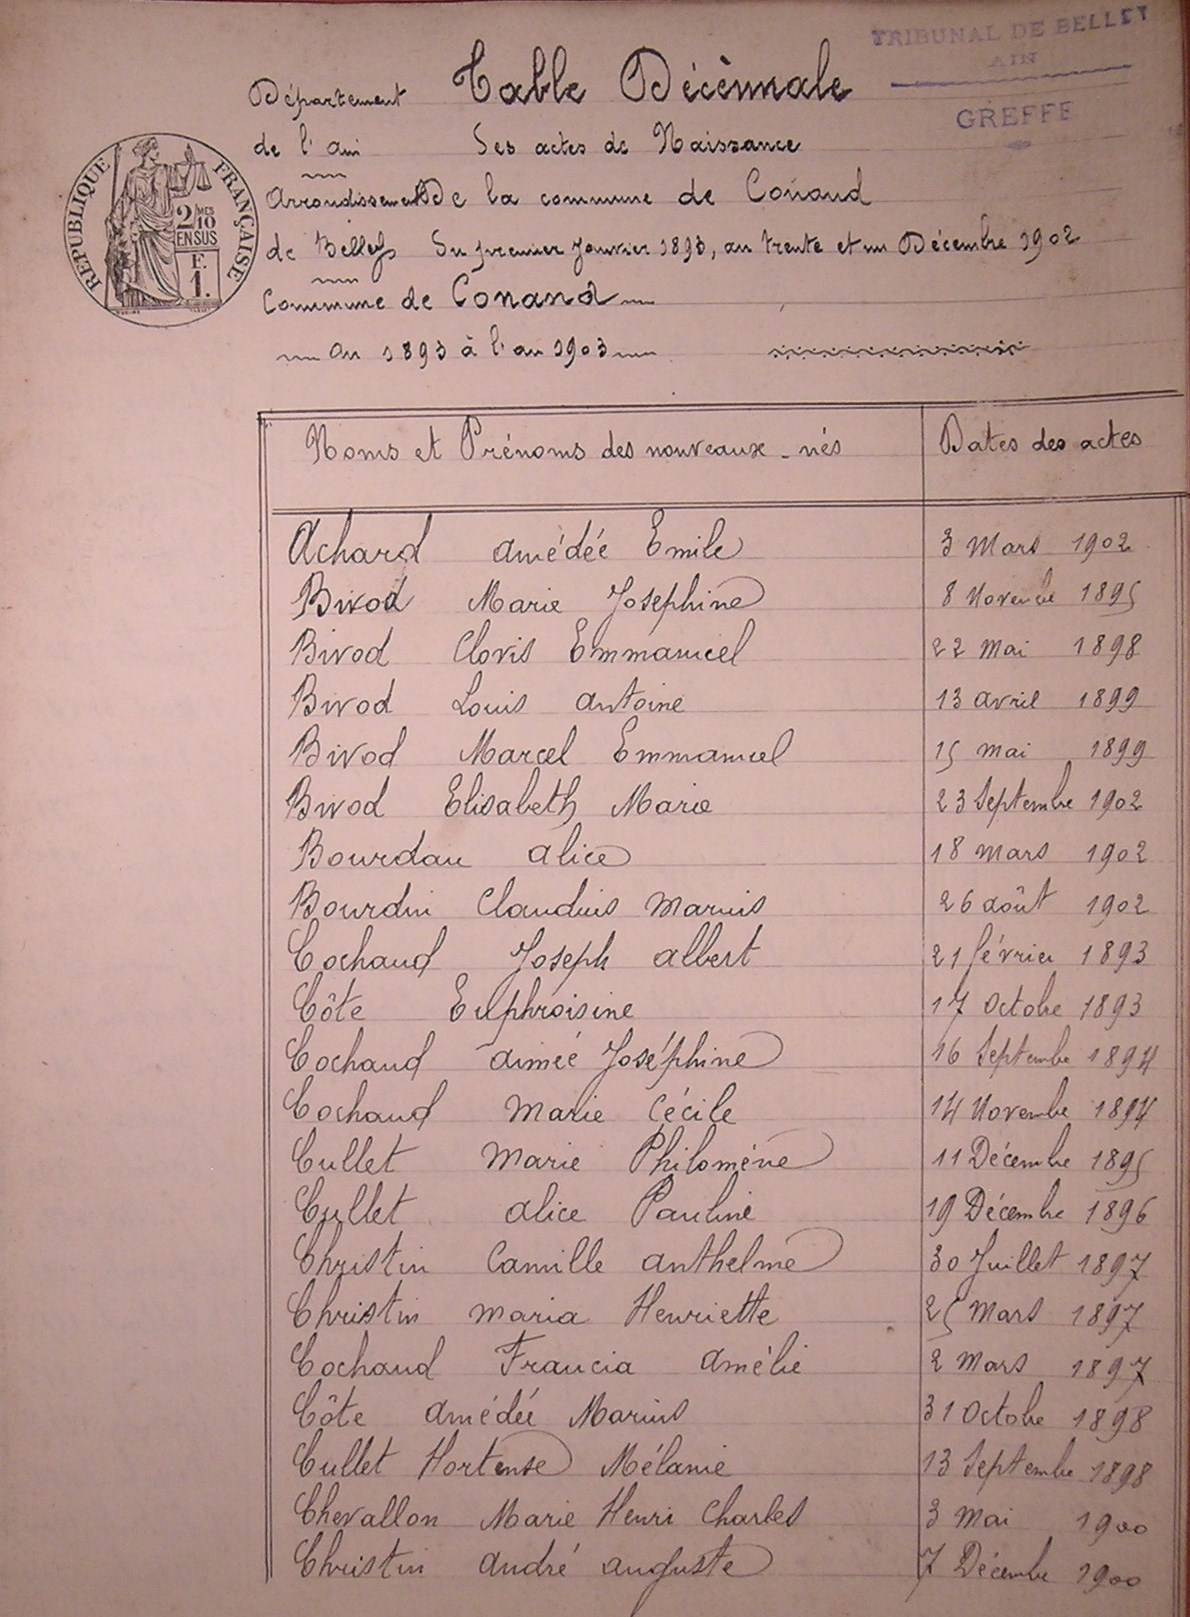 TRIBUNAL DE BELLEY
AIN
GREFFE
Table Décennale
Département
de l'ain
Des actes de Naissance
Arrondissement
De la commune de Conand
de Belley
Du premier Janvier 1893, au trente et un Décembre 1902
Commune de Conand
an 1893 à l'an 1903
RÉPUBLIQUE FRANÇAISE
2 MES
2/10
EN SUS
F.
1.
Noms et Prénoms des nouveaux-nés Dates des actes
Achard amédée Emile 3 Mars 1902
Bivod Marie Josephine 8 Novembre 1895
Bivod Clovis Emmanuel 22 Mai 1898
Bivod Louis antoine 13 avril 1899
Bivod Marcel Emmanuel 15 mai 1899
Bivod Elisabeth Marie 23 Septembre 1902
Bourdau alice 18 mars 1902
Bourdin Claudius Marius 26 août 1902
Cochaud Joseph albert 21 février 1893
Côte Euphroisine 17 Octobre 1893
Cochaud aimée Joséphine 16 Septembre 1894
Cochaud Marie Cécile 14 Novembre 1894
Cullet Marie Philomène 11 Décembre 1895
Cullet alice Pauline 19 Décembre 1896
Christin Camille anthelme 30 Juillet 1897
Christin maria Henriette 25 Mars 1897
Cochaud Francia amélie 2 Mars 1897
Côte amédée Marius 31 Octobre 1898
Cullet Hortense Mélanie 13 Septembre 1898
Chevallon Marie Henri Charles 3 Mai 1900
Christin andré auguste 7 Décembre 1900